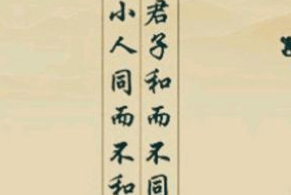 君子和而不同
小人同而不和